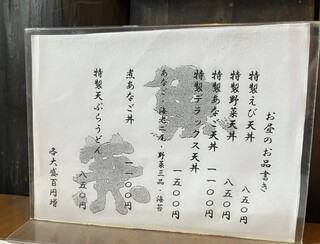 お昼のお品書き
特製えび天丼 八五〇円
特製野菜天丼 八五〇円
特製あなご天丼 一一〇〇円
特製デラックス天丼 一五〇〇円
あなご・海老二尾・野菜三品・海苔
煮あなご丼 一一〇〇円
特製天ぷらうどん 八五〇円
各大盛百円増